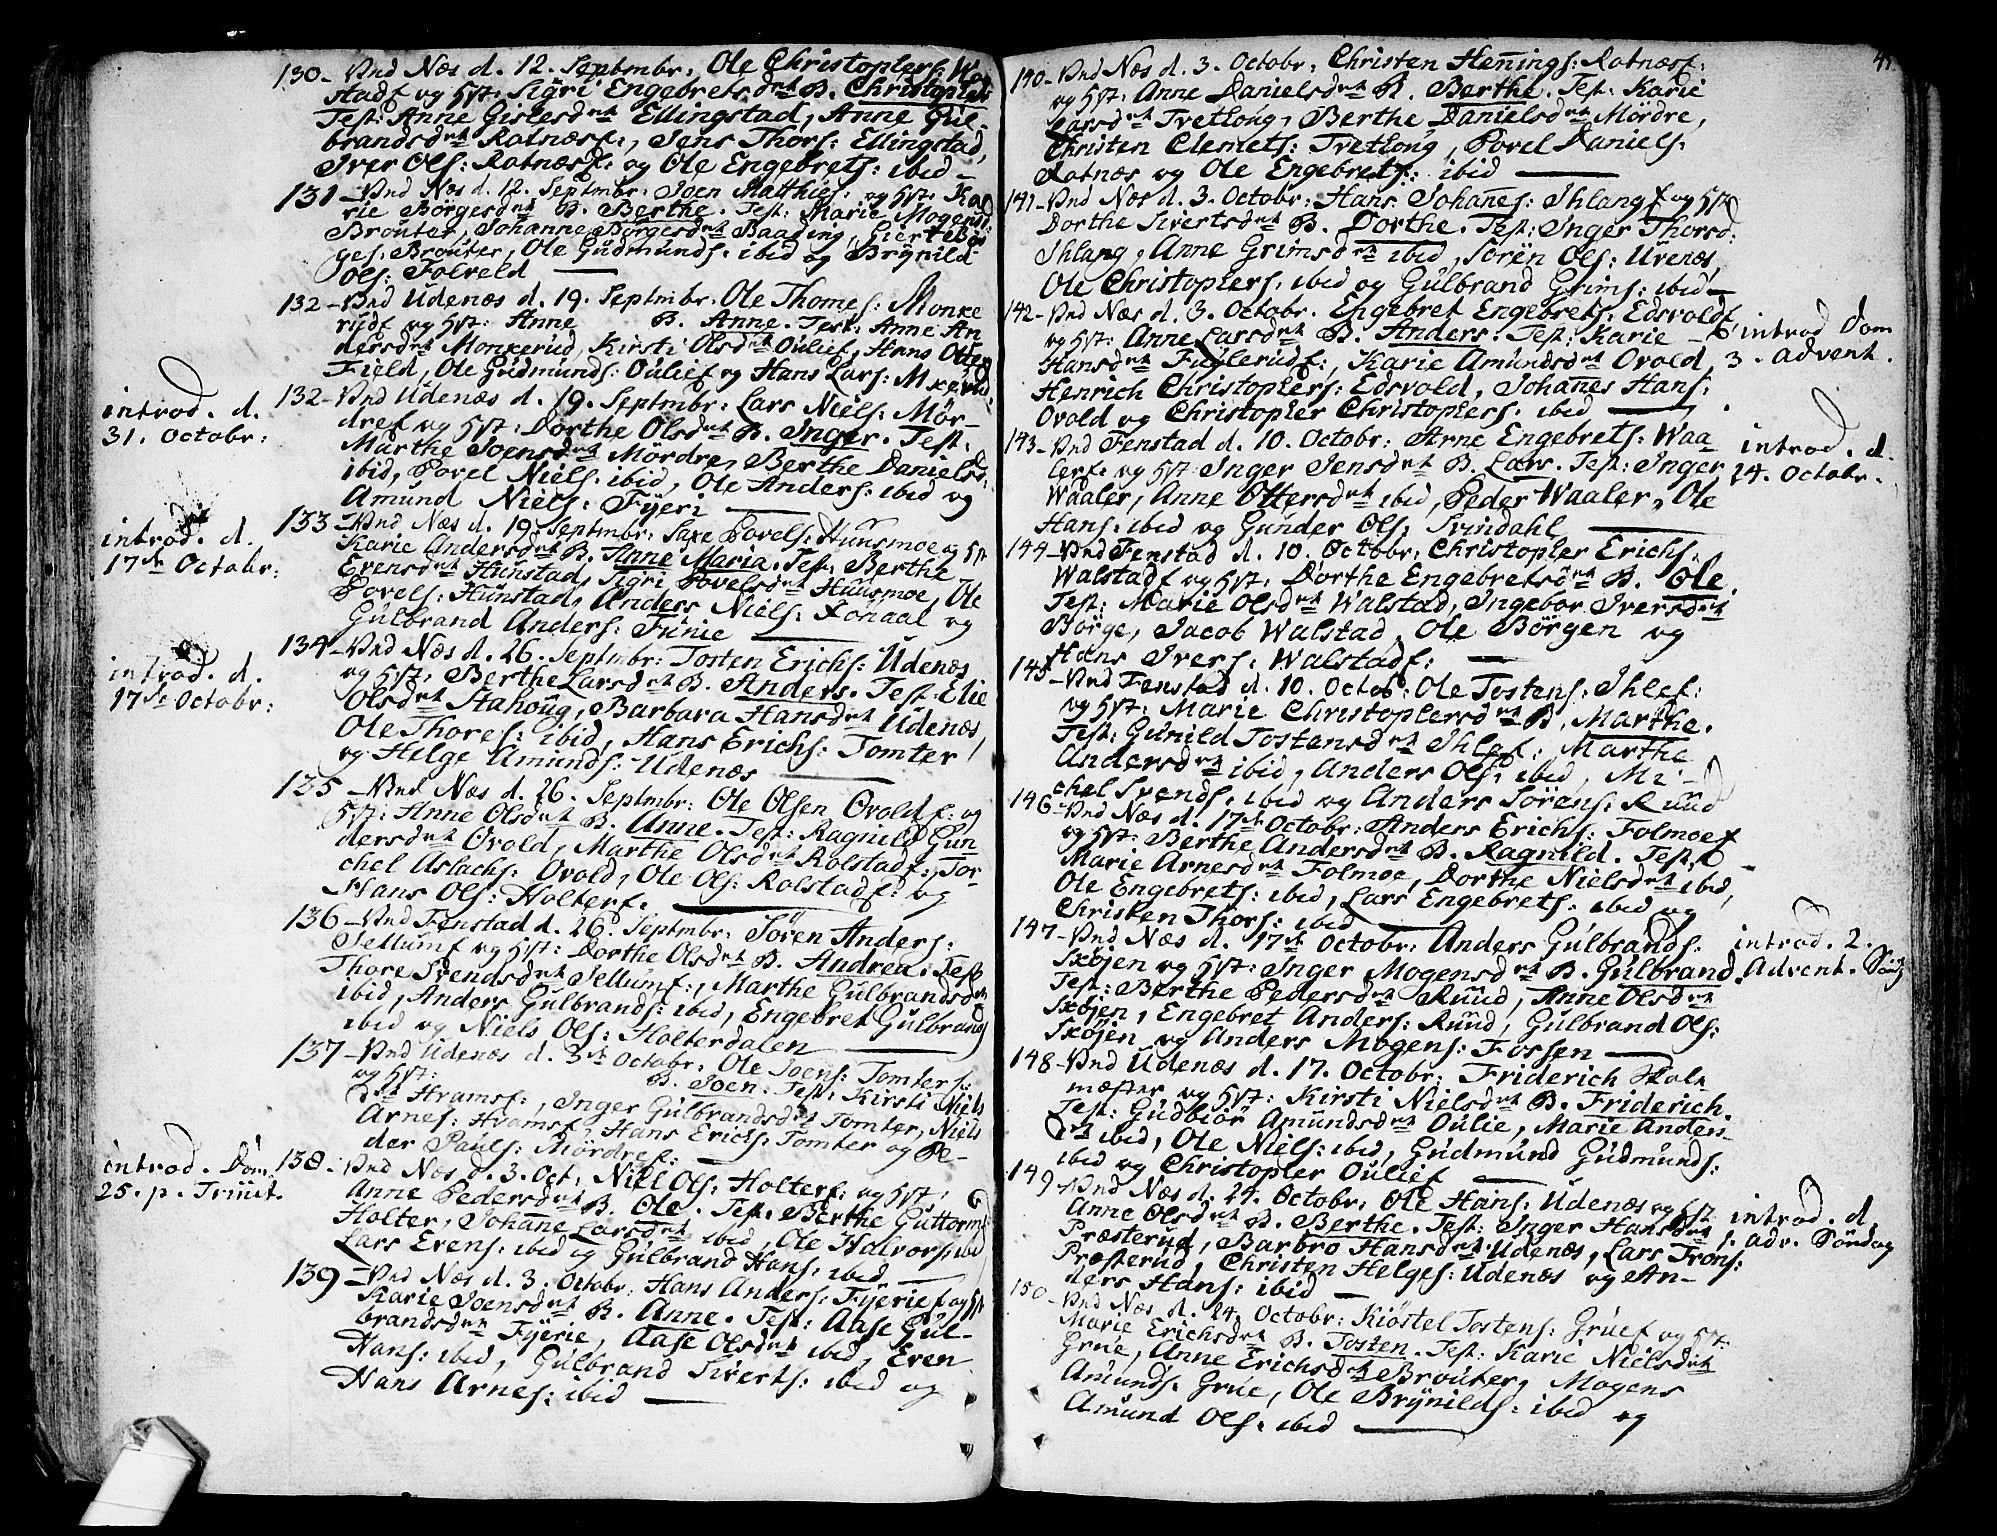 130 - Vnd Næs d. 12. Septmbr: Ole Christophers:
stadf og Hst: Sigri Engebretsdtr B. Christopher
Test: Anne Gislesdtr Ellingstad, Anne Gul-
brandsdtr Ratnæsf:, Jens Thors: Ellingstad,
Iver Ols: Ratnæsf: og Ole Engebrets: ibid -
131 - Vnd Næs d. 12. Septmbr: Joen Matthies: og Hst: Ka-
rie Börgesdtr B. Berthe. Test: Marie Mogensd:
Brouter, Johanne Börgesdtr Baading, Giert Bör-
ges: Brouter, Ole Gudmunds: ibid og Brynild
Ols: Folveld
132 - Vnd Udenæs d. 19. Septmbr. Ole Thomes: Monke
rudf og Hst: Anne B. Anne. Test: Anne An
dersdtr Monkerud, Kirsti Olsdtr Oulief, Hans Otten
Field, Ole Gudmunds: Oulief og Hans Lars:
132 - Vnd Udenæs d. 19. Septmbr: Lars Niels: Mör-
dref og Hst: Dorthe Olsdtr B. Inger. Test:
Marthe Joensdtr Mördre, Berthe Daniels:
ibid, Povel Niels: ibid, Ole Anders: ibid og
Amund Niels: Fyeri
introd. d.
31. Octobr:
133 - Vnd Næs d. 19. Septmbr: Saxe Povels: Huusmoe og Hst
Karie Andersdtr B. Anne Maria. Test: Berthe
Evensdtr Hunstad, Sigri Povelsdtr Huusmoe, Ole
Povels: Hunstad, Anders Niels: Ronaal og
Gulbrand Anders: Funie
introd. d.
17de Octobr:
134 - Vnd Næs d. 26. Septmbr: Tosten Erichs: Udenæs
og Hst: Berthe Larsdtr B. Anders. Test: Elie
Olsdtr Stahoug, Barbara Hansdtr Udenæs,
Ole Thores: ibid, Hans Erichs: Tomter
og Helge Amunds: Udenæs
introd. d.
17de Octobr:
135 - Vnd Næs d. 26. Septmbr: Ole Olsen Ovoldf: og
Hst: Anne Olsdtr B. Anne. Test: Ragnild Gun
dersdtr Ovold, Marthe Olsdtr Rolstadf:, Tor-
chel Aslachs: Ovold, Ole Ols: Rolstadf: og
Hans Ols: Holterf.
136 - Vnd Fenstad d. 26. Septmbr: Sören Anders:
Sellumf og Hst: Dorthe Olsdtr B. Andrea. Test
Thore Svendsdtr Sellumf:, Marthe Gulbrandsdtr
ibid, Anders Gulbrands: ibid, Engebret Gulbrands
ibid og Niels Ols: Holterdalen
137 - Vnd Udenæs d. 3de Octobr. Ole Joens: Tomters:
og Hst: B. Joen. Test: Kirsti Niels
dtr Hramsf:, Inger Gulbrandsdtr Tomter, Niels
Arnes: Hramsf, Hans Erichs: Tomter og Pe-
der Pauls: Mördref:
138. Vnd Næs d. 3. Oct: Niell Ols: Holterf: og Hst:
Anne Pedersdtr B. Ole. Test: Berthe Guttormsd
Holter, Johanne Larsdtr ibid, Ole Halvors: ibid
Lars Evens: ibid og Gulbrand Hans: ibid.
introd. Dom.
25. p. Trinit.
139 - Vnd Næs d. 3. Octobr: Hans Anders: Fyerief og Hst
Karie Joensdtr B. Anne. Test: Aase Gul-
brandsdtr Fyerie, Aase Olsdtr ibid, Even
Hans: ibid, Gulbrand Siverts: ibid og
Hans Arnes: ibid
140 - Vnd Næs d. 3. Octobr: Christen Hennings: Ratnæsf:
og Hst: Anne Danielsdtr B. Berthe. Test: Karie
Larsdtr Tvetloug, Berthe Danielsdtr Mördre,
Christen Clemets: Tvetloug, Povel Daniels:
Ratnæs og Ole Engebrets: ibid
141 - Vnd Næs d. 3. Octobr: Hans Johanes: Ihlangf og Hst
Dorthe Sivertsdtr B. Dorthe. Test: Inger Thorsd:
Ihlang, Anne Grimsdtr ibid, Sören Ols: Uvenæs,
Ole Christophers: ibid og Gulbrand Grims: ibid
142 - Vnd Næs d. 3. Octobr. Engebret Engebrets: Edsvoldf
og Hst: Anne Larsdtr B. Anders. Test: Karie
Hansdtr Fuglerudf:, Karie Amundsdtr Ovold,
Henrich Christophers: Edsvold, Johanes Hans:
Ovold og Christopher Christophers: ibid
introd. Dom
3. Advent.
143 - Vnd Fenstad d. 10. Octobr: Arne Engebrets: Waa
lerf. og Hst: Inger Jensdtr B. Lars. Test: Inger
Waaler, Anne Ottersdtr ibid, Peder Waaler, Ole
Hans: ibid og Gunder Ols: Svindahl
introd. d.
24. Octobr.
144 - Vnd Fenstad d. 10. Octobr: Christopher Erichs:
Walstadf og Hst: Dorthe Engebretsdtr B. Ole.
Test: Marie Olsdtr Walstad, Ingebor Iversdtr
Börge, Jacob Walstad, Ole Börgen og
Hans Ivers: Walstadf:
145 - Vnd Fenstad d. 10. Octob: Ole Tostens: Ihlef:
og Hst: Marie Christophersdtr B. Marthe.
Test: Gunild Tostensdtr Ihlef: Marthe
Andersdtr ibid, Anders Ols: ibid, Mi-
chel Svends: ibid og Anders Sörens: Ruud
146 - Vnd Næs d. 17de Octobr: Anders Erichs: Folmoef
og Hst: Berthe Andersdtr B. Ragnild. Test:
Marie Arnesdtr Folmoe, Dorthe Nielsdtr ibid,
Ole Engebrets: ibid, Lars Engebrets: ibid og
Christen Thors: ibid
147 - Vnd Næs d. 17de Octobr: Anders Gulbrands:
Skøjen og Hst: Inger Mogensdtr B. Gulbrand.
Test: Berthe Pedersdtr Ruud, Anne Olsdtr
Skøjen, Engebret Anders: Ruud, Gulbrand Ols:
Skøjen og Anders Mogens: Fossen
introd. 2.
Advent. Sönd
148 - Vnd Udenæs d. 17. Octobr: Friderich Skole
mæster og Hst: Kirsti Nielsdtr B. Friderich.
Test: Gudbiör Amundsdtr Oulie, Marie Anders-
dtr ibid, Ole Niels: ibid, Gudmund Gudmunds:
ibid og Christopher Oulief
149 - Vnd Næs d. 24. Octobr: Ole Hans: Udenæs og Hst
Anne Olsdtr B. Berthe. Test: Inger Hansdtr
Præsterud, Barbro Hansdtr Udenæs, Lars Trons:
Præsterud, Christen Helges: Udenæs og An-
ders Hans: ibid
introd. d.
1. adv. Söndag
150 - Vnd Næs d. 24. Octobr: Kiöstel Tostens: Gruef og Hst:
Marie Erichsdtr B. Tosten. Test: Karie Nielsdtr
Grue, Anne Erichsdtr Brouter, Mogens
Amunds: Grue, Ole Brynilds: ibid og
Amund Ols: ibid